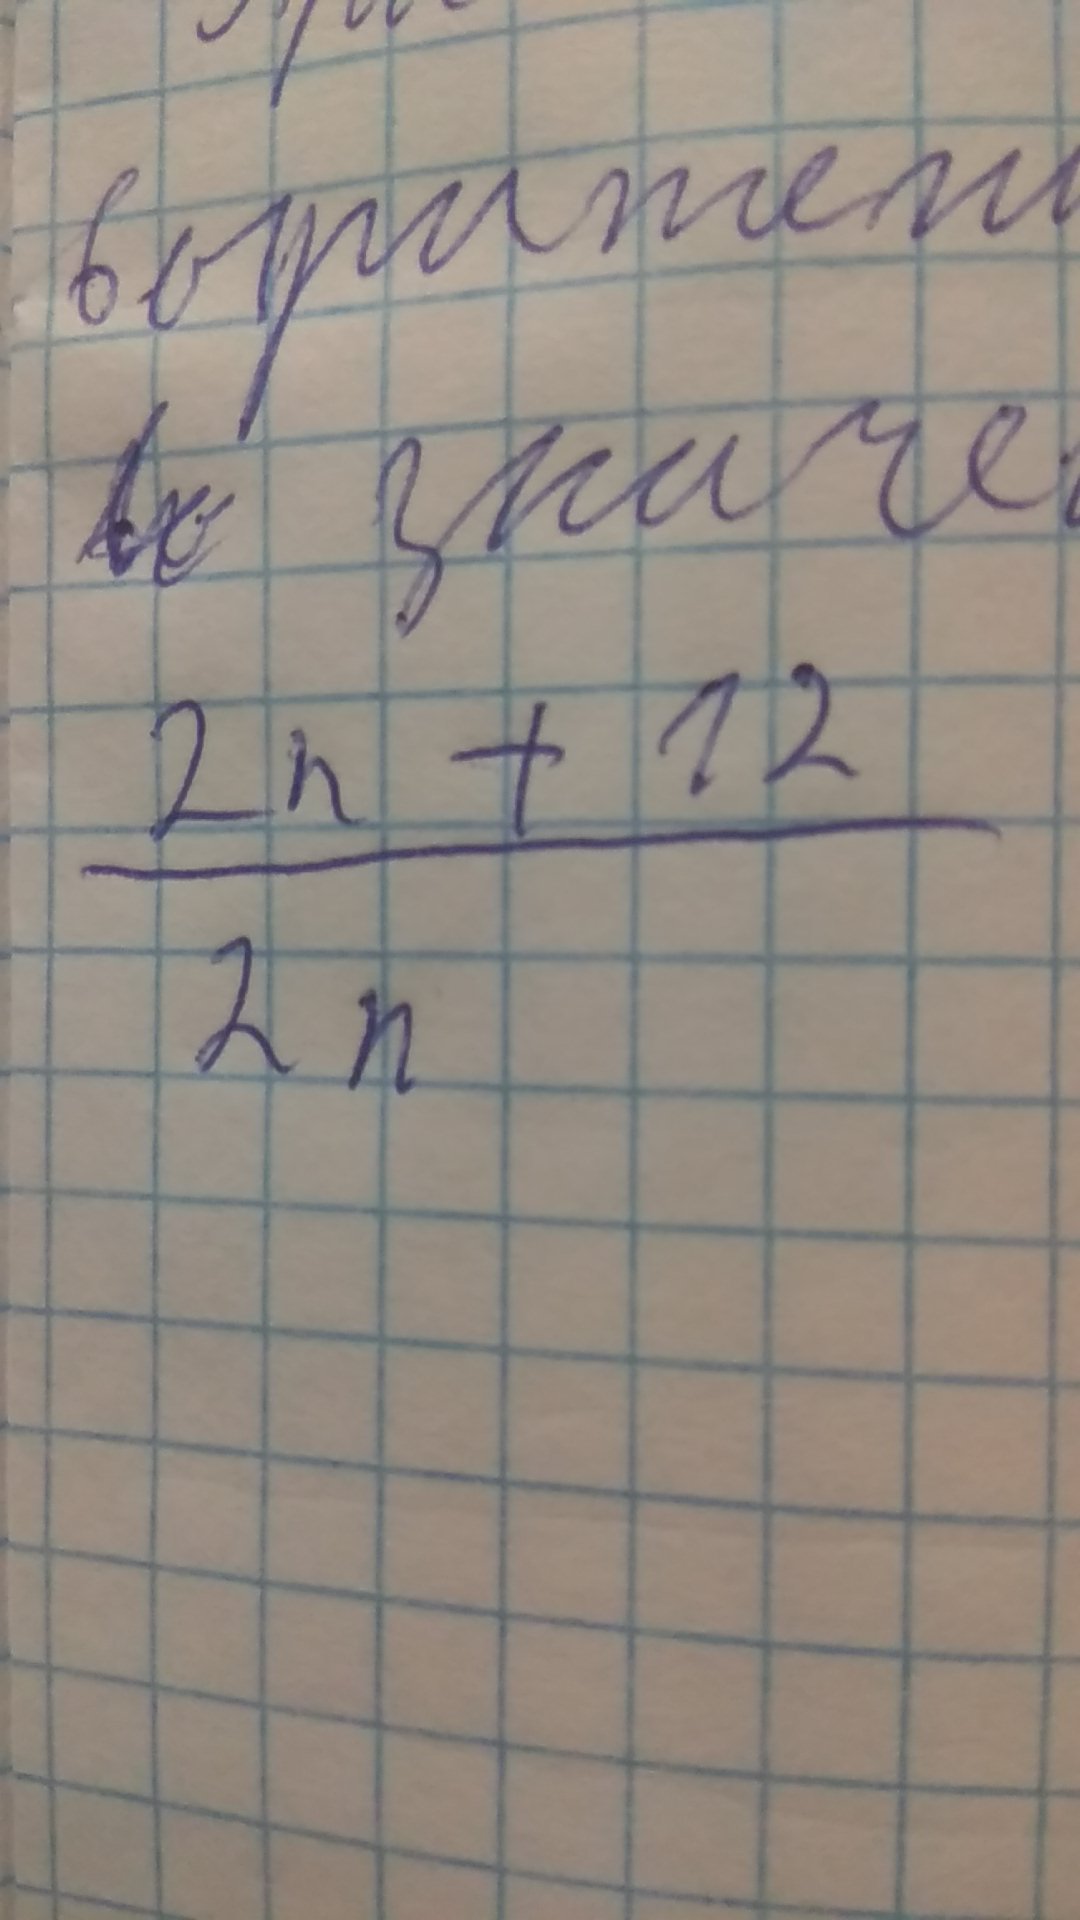 выражени
значе
2n + 12
2n